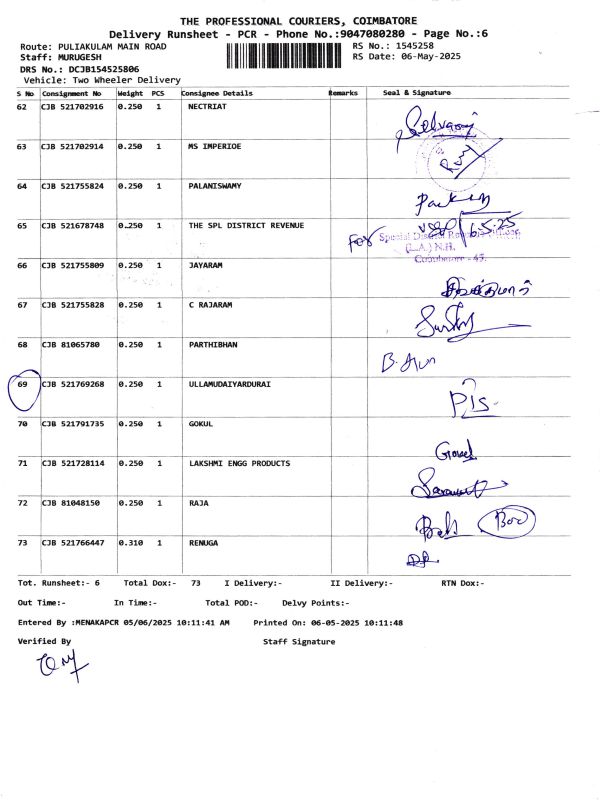 THE PROFESSIONAL COURIERS, COIMBATORE
Delivery Runsheet - PCR - Phone No.:9047080280 - Page No.:6
Route: PULIAKULAM MAIN ROAD RS No.: 1545258
Staff: MURUGESH RS Date: 06-May-2025
DRS No.: DCJB154525806
Vehicle: Two Wheeler Delivery
S No Consignment No Weight PCS Consignee Details Remarks Seal & Signature
62 CJB 521702916 0.250 1 NECTRIAT
63 CJB 521702914 0.250 1 MS IMPERIOE
64 CJB 521755824 0.250 1 PALANISWAMY
65 CJB 521678748 0.250 1 THE SPL DISTRICT REVENUE
6.5.25
For Special District Revenue Officer,
(L.A.) N.H.
Coimbatore - 45.
66 CJB 521755809 0.250 1 JAYARAM
67 CJB 521755828 0.250 1 C RAJARAM
68 CJB 81065780 0.250 1 PARTHIBHAN
69 CJB 521769268 0.250 1 ULLAMUDAIYARDURAI
70 CJB 521791735 0.250 1 GOKUL
71 CJB 521728114 0.250 1 LAKSHMI ENGG PRODUCTS
72 CJB 81048150 0.250 1 RAJA
73 CJB 521766447 0.310 1 RENUGA
Tot. Runsheet:- 6 Total Dox:- 73 I Delivery:- II Delivery:- RTN Dox:-
Out Time:- In Time:- Total POD:- Delvy Points:-
Entered By :MENAKAPCR 05/06/2025 10:11:41 AM Printed On: 06-05-2025 10:11:48
Verified By Staff Signature